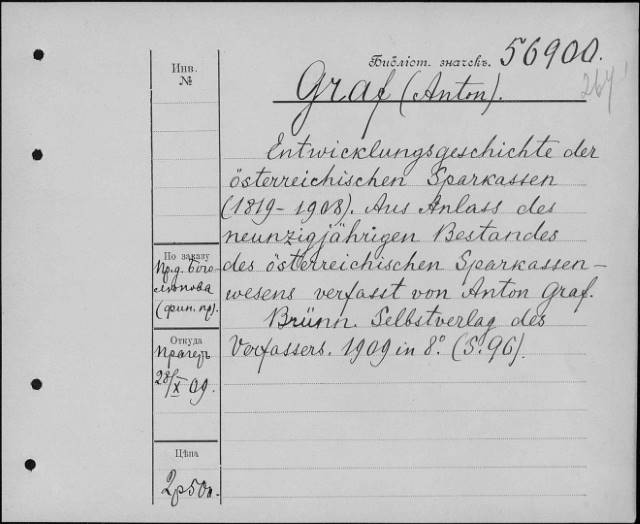 Библіот. значекъ. 56900.
267
Инв.
№
Graf (Anton).
Entwicklungsgeschichte der
österreichischen Sparkassen
(1819-1908). Aus Anlass des
neunzigjährigen Bestandes
des österreichischen Sparkassen-
wesens verfasst von Anton Graf.
Brünn. Selbstverlag des
Verfassers. 1909 in 8º. (S. 96).
По заказу
Пр.д. Бого-
лѣпова
(фин. пр).
Откуда
Прагеръ
28/X 09.
Цѣна
2р50к.